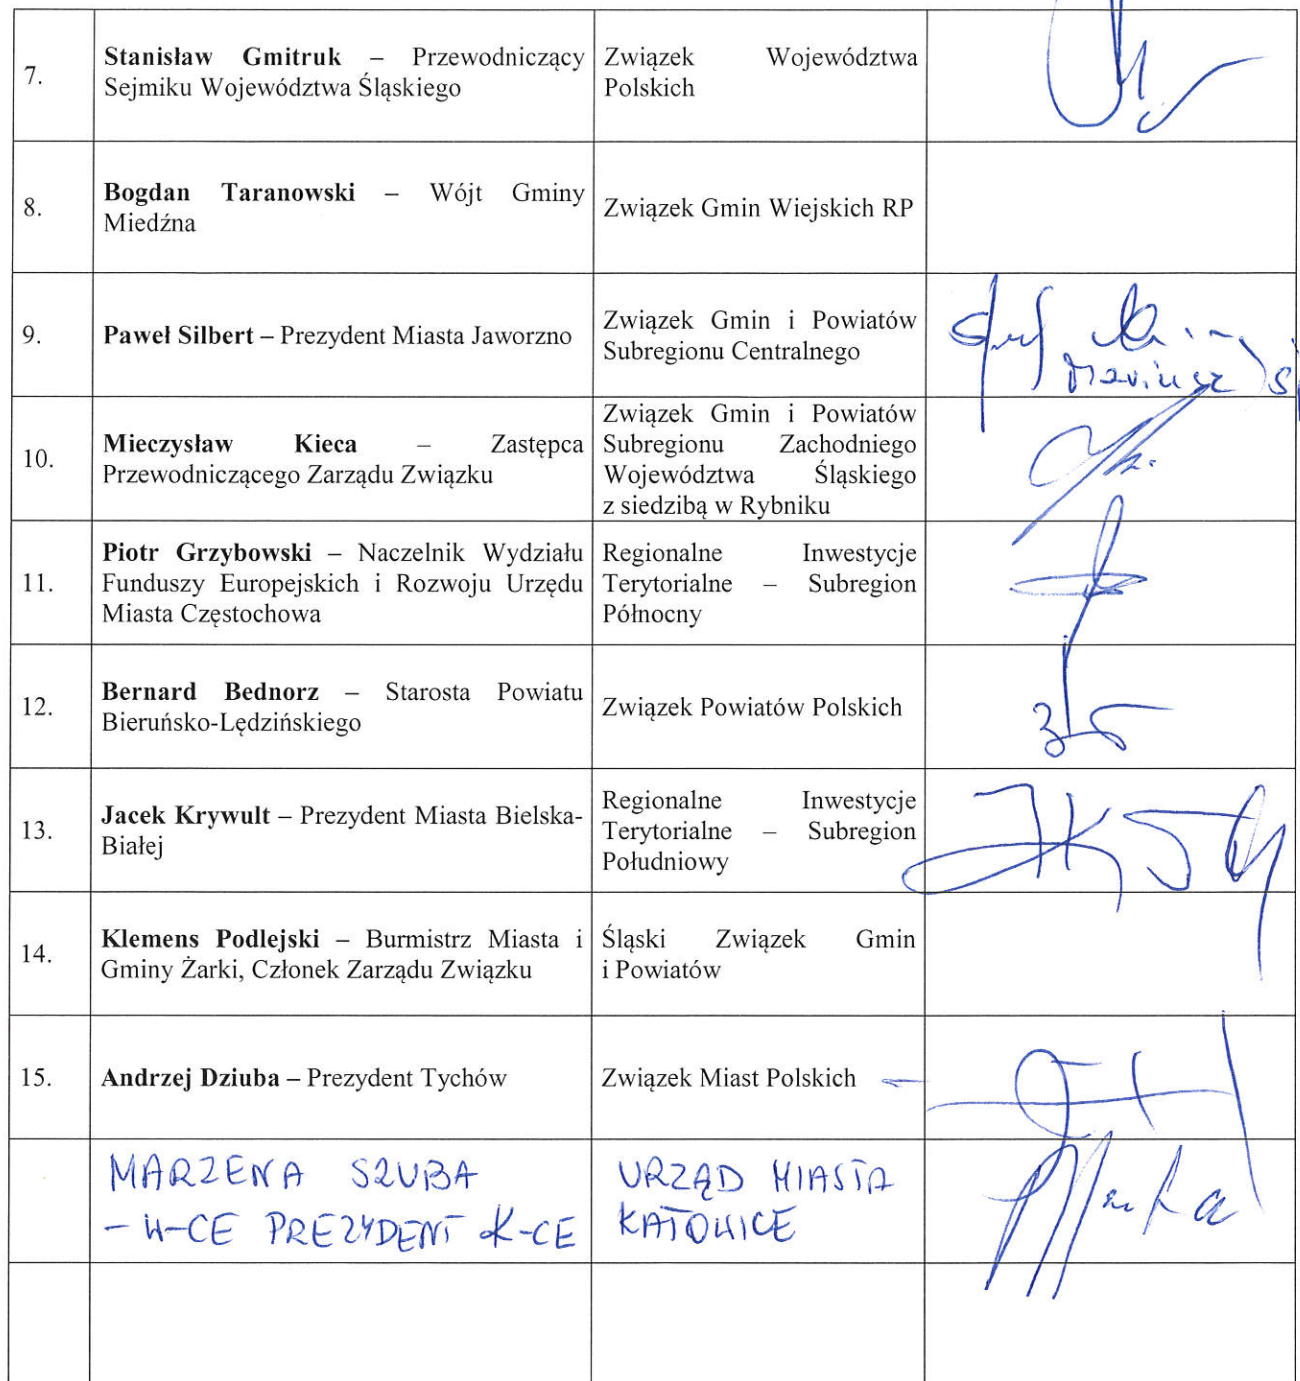 7.
Stanisław Gmitruk – Przewodniczący
Sejmiku Województwa Śląskiego
Związek Województwa
Polskich
8.
Bogdan Taranowski – Wójt Gminy
Miedźna
Związek Gmin Wiejskich RP
9.
Paweł Silbert – Prezydent Miasta Jaworzno
Związek Gmin i Powiatów
Subregionu Centralnego
Mariusz
10.
Mieczysław Kieca – Zastępca
Przewodniczącego Zarządu Związku
Związek Gmin i Powiatów
Subregionu Zachodniego
Województwa Śląskiego
z siedzibą w Rybniku
11.
Piotr Grzybowski – Naczelnik Wydziału
Funduszy Europejskich i Rozwoju Urzędu
Miasta Częstochowa
Regionalne Inwestycje
Terytorialne – Subregion
Północny
12.
Bernard Bednorz – Starosta Powiatu
Bieruńsko-Lędzińskiego
Związek Powiatów Polskich
13.
Jacek Krywult – Prezydent Miasta Bielska-
Białej
Regionalne Inwestycje
Terytorialne – Subregion
Południowy
14.
Klemens Podlejski – Burmistrz Miasta i
Gminy Żarki, Członek Zarządu Związku
Śląski Związek Gmin
i Powiatów
15.
Andrzej Dziuba – Prezydent Tychów
Związek Miast Polskich
MARZENA SZUBA
– W-CE PREZYDENT K-CE
URZĄD MIASTA
KATOWICE